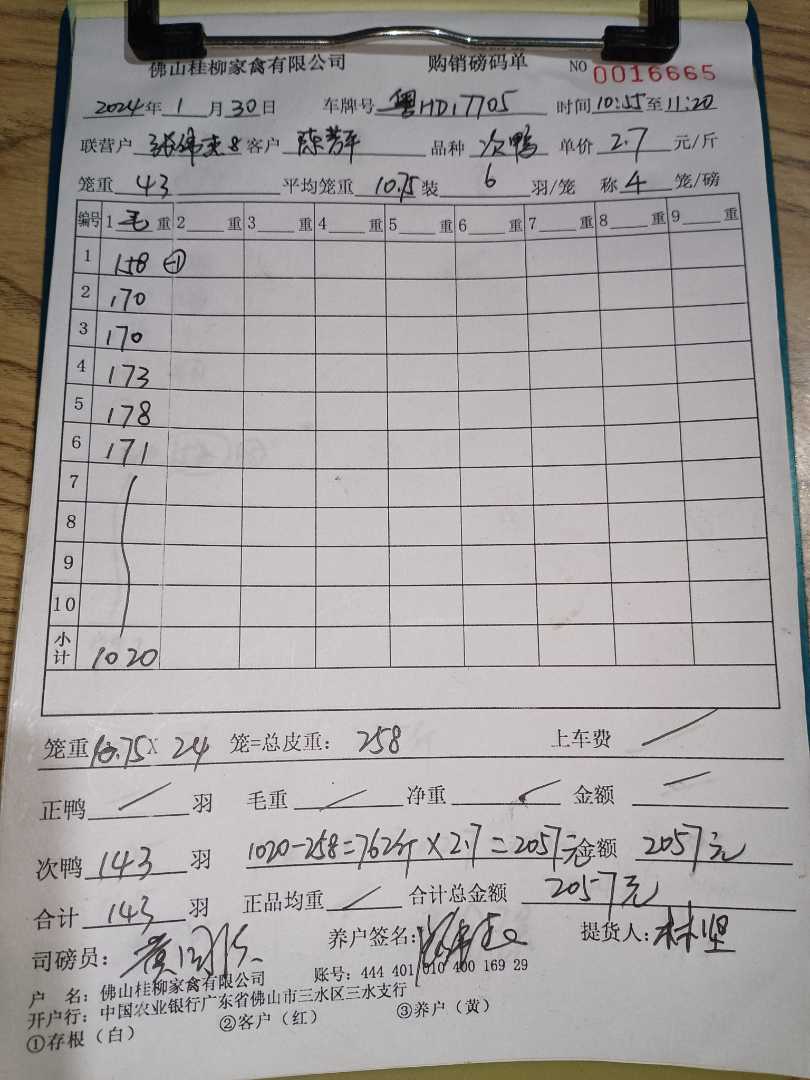 佛山桂柳家禽有限公司 购销磅码单 NO 0016665
2024年 1 月 30 日 车牌号 粤HD17705 时间 10:55 至 11:20
联营户 客户 陈芳平 品种 次鸭 单价 2.7 元/斤
笼重 43 平均笼重 10.75 装 6 羽/笼 称 4 笼/磅
编号 1 毛 重 2 重 3 重 4 重 5 重 6 重 7 重 8 重 9 重
1 158 ①
2 170
3 170
4 173
5 178
6 171
7
8
9
10
小计 1020
笼重 10.75 X 24 笼=总皮重: 258 上车费
正鸭 羽 毛重 净重 金额
次鸭 143 羽 1020-258=762斤×2.7=2057元 金额 2057元
合计 143 羽 正品均重 合计总金额 2057元
司磅员: 养户签名: 提货人: 林坚
户 名: 佛山桂柳家禽有限公司 账号: 444 401 010 400 169 29
开户行: 中国农业银行广东省佛山市三水区三水支行
①存根（白） ②客户（红） ③养户（黄）